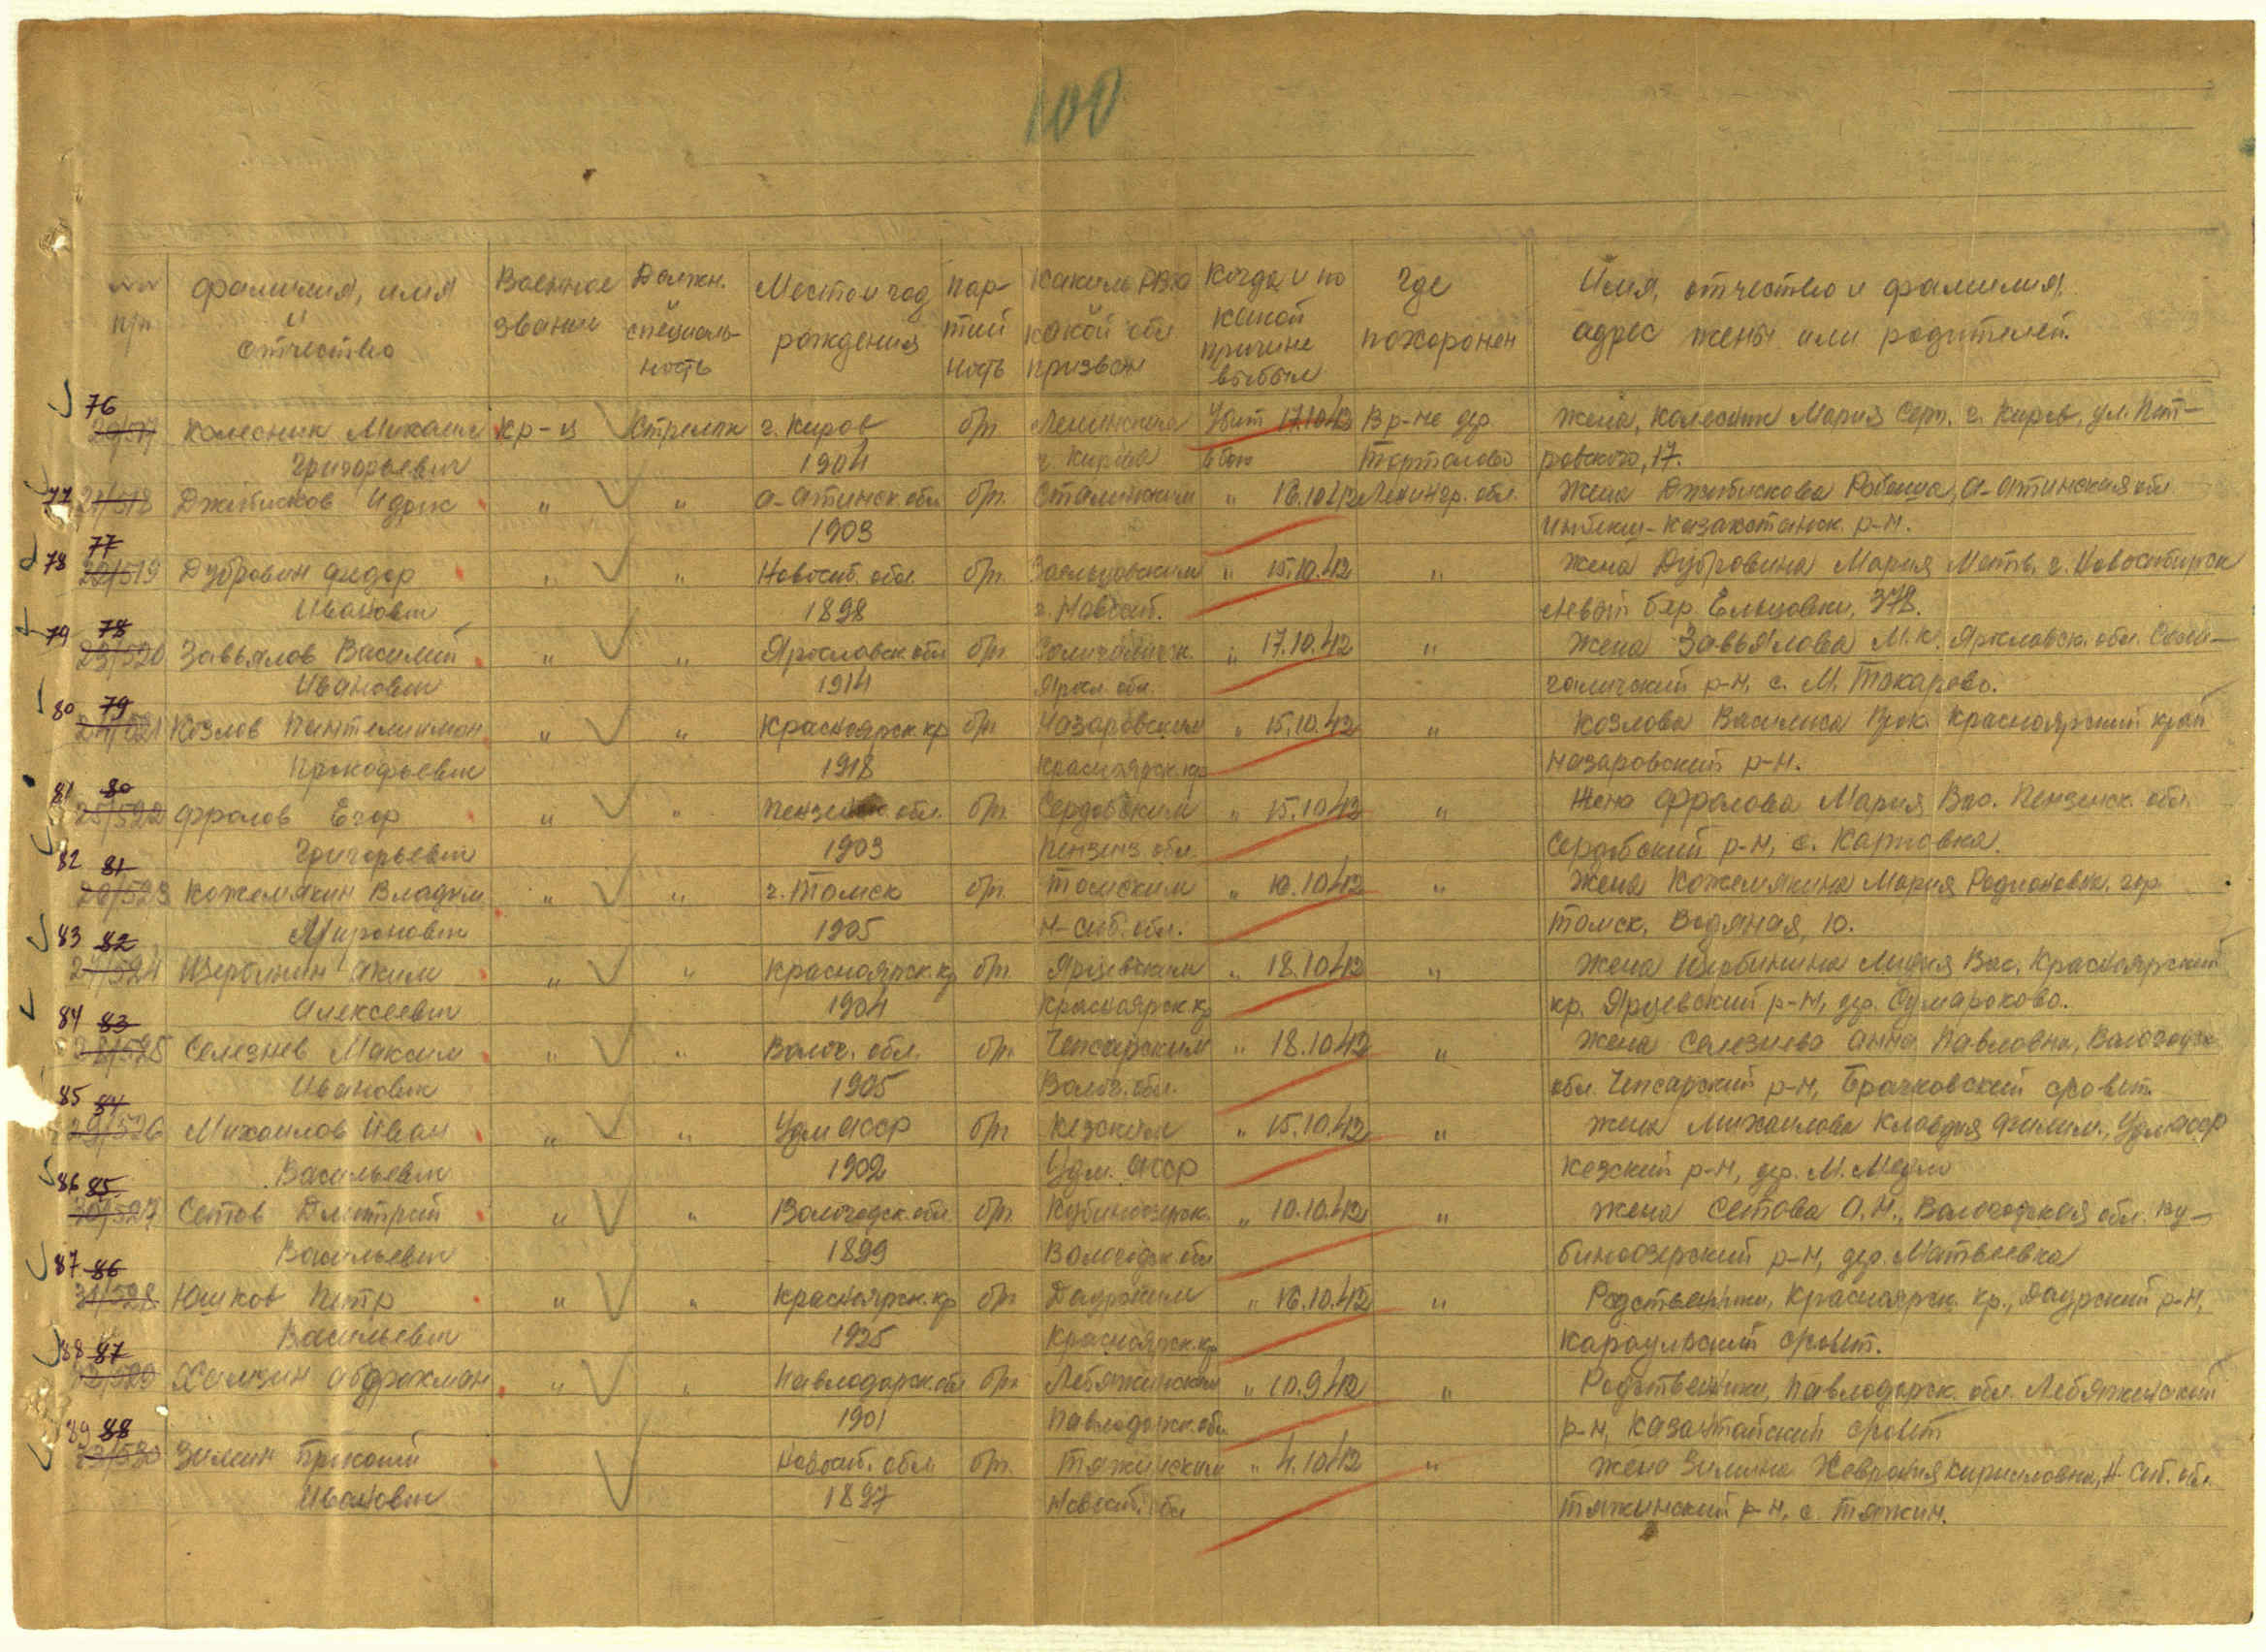 100
№№ п/п | Фамилия, имя и отчество | Военное звание | Должн. специальность | Место и год рождения | Партийность | Каким РВК какой обл призван | Когда и по какой причине выбыл | Где похоронен | Имя, отчество и фамилия, адрес жены или родителей.
76 29/517 Колесник Михаил кр-ц Стрелок г. Киров б/п. Ленинским Убит 17.10.42 В р-не дер Жена, Колесник Мария Серг. г. Киров, ул. Пят-
Григорьевич 1904 г. Кирова в бою Тортолово ровского, 17.
77 21/518 Джетписков Идрис " " А-Атинск. обл. б/п. Сталинским " 16.10.42 Ленингр. обл. Жена Джетпискова А-Атинская обл
1903 Энбекши-Казахстанск. р-н.
78 77 22/519 Дубровин Федор " " Новосиб. обл. б/п. Заельцовским " 15.10.42 " Жена Дубровина Мария Матв. г. Новосибирск
Иванович 1898 г. Новосиб. левый бер. Ельцовки, 378.
79 78 23/520 Завьялов Василий " " Ярославск. обл б/п. Солигаличск. " 17.10.42 " Жена Завьялова М.К. Ярославск. обл. Соли-
Иванович 1914 Яросл. обл. галичский р-н, с. М. Токарево.
80 79 24/521 Козлов Пантелиимон " " Красноярск. кр б/п. Назаровским " 15.10.42 " Козлова Василиса Прок. Красноярский край
Прокофьевич 1918 Красноярск. кр Назаровский р-н.
81 80 25/522 Фролов Егор " " Пензенск. обл. б/п. Сердобским " 15.10.42 " Жена Фролова Мария Вас. Пензенск. обл.
Григорьевич 1903 Пензенз. обл. Сердобский р-н, с. Карповка.
82 81 26/523 Кожемякин Владим " " г. Томск б/п. Томским " 10.10.42 " Жена Кожемякина Мария Родионовн. гор.
Миронович 1905 Н-Сиб. обл. Томск, Водяная, 10.
83 82 27/524 Щербинин Аким " " Красноярск. кр б/п. Ярцевским " 18.10.42 " Жена Щербинина Лидия Вас. Красноярский
Алексеевич 1904 Красноярск. кр кр. Ярцевский р-н, дер. Сумароково.
84 83 28/525 Селезнев Максим " " Волог. обл. б/п. Чепсарским " 18.10.42 " Жена Селезнева Анна Павловна, Вологодск
Иванович 1905 Волог. обл. обл. Чепсарский р-н, Брачковский с/совет.
85 84 29/526 Михайлов Иван " " Удм АССР б/п Кезским " 15.10.42 " Жена Михайлова Клавдия Филим., Удм АССР
Васильевич 1902 Удм. АССР Кезский р-н, дер. М. Медло
86 85 30/527 Сетов Дмитрий " " Вологодск. обл б/п. Кубиноозерск. " 10.10.42 " Жена Сетова А.Н., Вологодская обл. Ку-
Васильевич 1899 Вологодск обл биноозерский р-н, дер. Матвеевка
87 86 31/528 Юшков Петр " " Красноярск. кр б/п Даурским " 16.10.42 " Родственники, Красноярск. кр., Даурский р-н,
Васильевич 1925 Красноярск. кр Караульский с/совет.
88 87 32/529 Хамзин Абдрахман " " Павлодарск. обл б/п Лебяжинским " 10.9.42 " Родственники, Павлодарск. обл. Лебяжинский
1901 Павлодарск. обл. р-н, Казантайский с/совет
89 88 33/530 Зимин Прокопий Новосиб. обл. б/п. Тяжинским " 4.10.42 " Жена Зимина Хеврония Кирилловна, Н-Сиб. обл.
Иванович 1897 Новосиб. обл Тяжинский р-н, с. Тяжин.